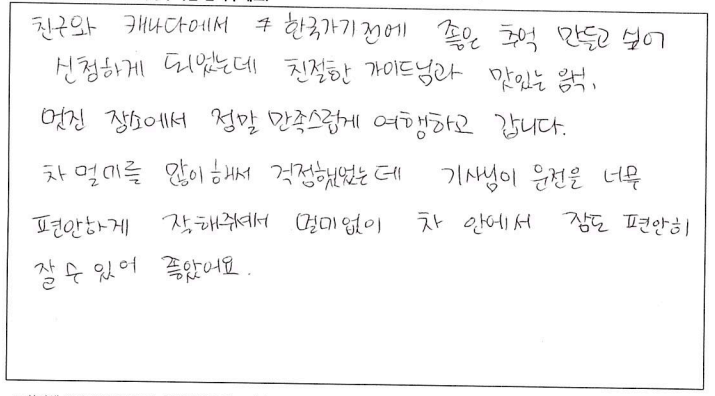 친구와 캐나다에서 한국가기전에 좋은 추억 만들고 싶어
신청하게 되었는데 친절한 가이드님과 맛있는 음식,
멋진 장소에서 정말 만족스럽게 여행하고 갑니다.
차 멀미를 많이해서 걱정했었는데 기사님이 운전을 너무
편안하게 잘해주셔서 멀미없이 차 안에서 잠도 편안히
잘 수 있어 좋았어요.